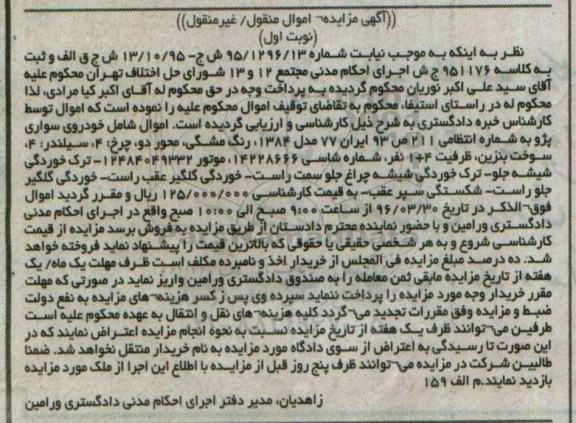 ((آگهی مزایده- اموال منقول/ غیرمنقول))
(نوبت اول)
نظر به اینکه به موجب نیابت شماره ۹۵/۱۲۹۶/۱۳ ش ج- ۱۳/۱۰/۹۵ ش ج ق الف و ثبت
به کلاسه ۹۵۱۱۷۶ ج ش اجرای احکام مدنی مجتمع ۱۲ و ۱۳ شورای حل اختلاف تهران محکوم علیه
آقای سید علی اکبر نوریان محکوم گردیده به پرداخت وجه در حق محکوم له آقای اکبر کیا مرادی، لذا
محکوم له در راستای استیفا، محکوم به تقاضای توقیف اموال محکوم علیه را نموده است که اموال توسط
کارشناس خبره دادگستری به شرح ذیل کارشناسی و ارزیابی گردیده است. اموال شامل خودروی سواری
پژو به شماره انتظامی ۲۱۱ ص ۹۳ ایران ۷۷ مدل ۱۳۸۴، رنگ مشکی، محور دو، چرخ: ۴، سیلندر: ۴،
سوخت بنزین، ظرفیت ۴+۱ نفر، شماره شاسی ۱۴۲۲۸۶۶۶، موتور ۱۲۴۸۴۰۴۹۳۳۲- ترک خوردگی
شیشه جلو- ترک خوردگی شیشه چراغ جلو سمت راست- خوردگی گلگیر عقب راست- خوردگی گلگیر
جلو راست- شکستگی سپر عقب- به قیمت کارشناسی ۱۲۵/۰۰۰/۰۰۰ ریال و مقرر گردید اموال
فوق-الذکر در تاریخ ۹۶/۰۳/۳۰ از ساعت ۹:۰۰ صبح الی ۱۰:۰۰ صبح واقع در اجرای احکام مدنی
دادگستری ورامین و با حضور نماینده محترم دادستان از طریق مزایده به فروش برسد مزایده از قیمت
کارشناسی شروع و به هر شخصی حقیقی یا حقوقی که بالاترین قیمت را پیشنهاد نماید فروخته خواهد
شد. ده درصد مبلغ مزایده فی المجلس از خریدار اخذ و نامبرده مکلف است ظرف مهلت یک ماه/ یک
هفته از تاریخ مزایده مابقی ثمن معامله را به صندوق دادگستری ورامین واریز نماید در صورتی که مهلت
مقرر خریدار وجه مورد مزایده را پرداخت ننماید سپرده وی پس از کسر هزینه-های مزایده به نفع دولت
ضبط و مزایده وفق مقررات تجدید می-گردد کلیه هزینه-های نقل و انتقال به عهده محکوم علیه است
طرفین می-توانند ظرف یک هفته از تاریخ مزایده نسبت به نحوه انجام مزایده اعتراض نمایند که در
این صورت تا رسیدگی به اعتراض از سوی دادگاه مورد مزایده به نام خریدار منتقل نخواهد شد. ضمنا
طالبین شرکت در مزایده می-توانند ظرف پنج روز قبل از مزایده با اطلاع این اجرا از ملک مورد مزایده
بازدید نمایند.م الف ۱۵۹
زاهدیان، مدیر دفتر اجرای احکام مدنی دادگستری ورامین